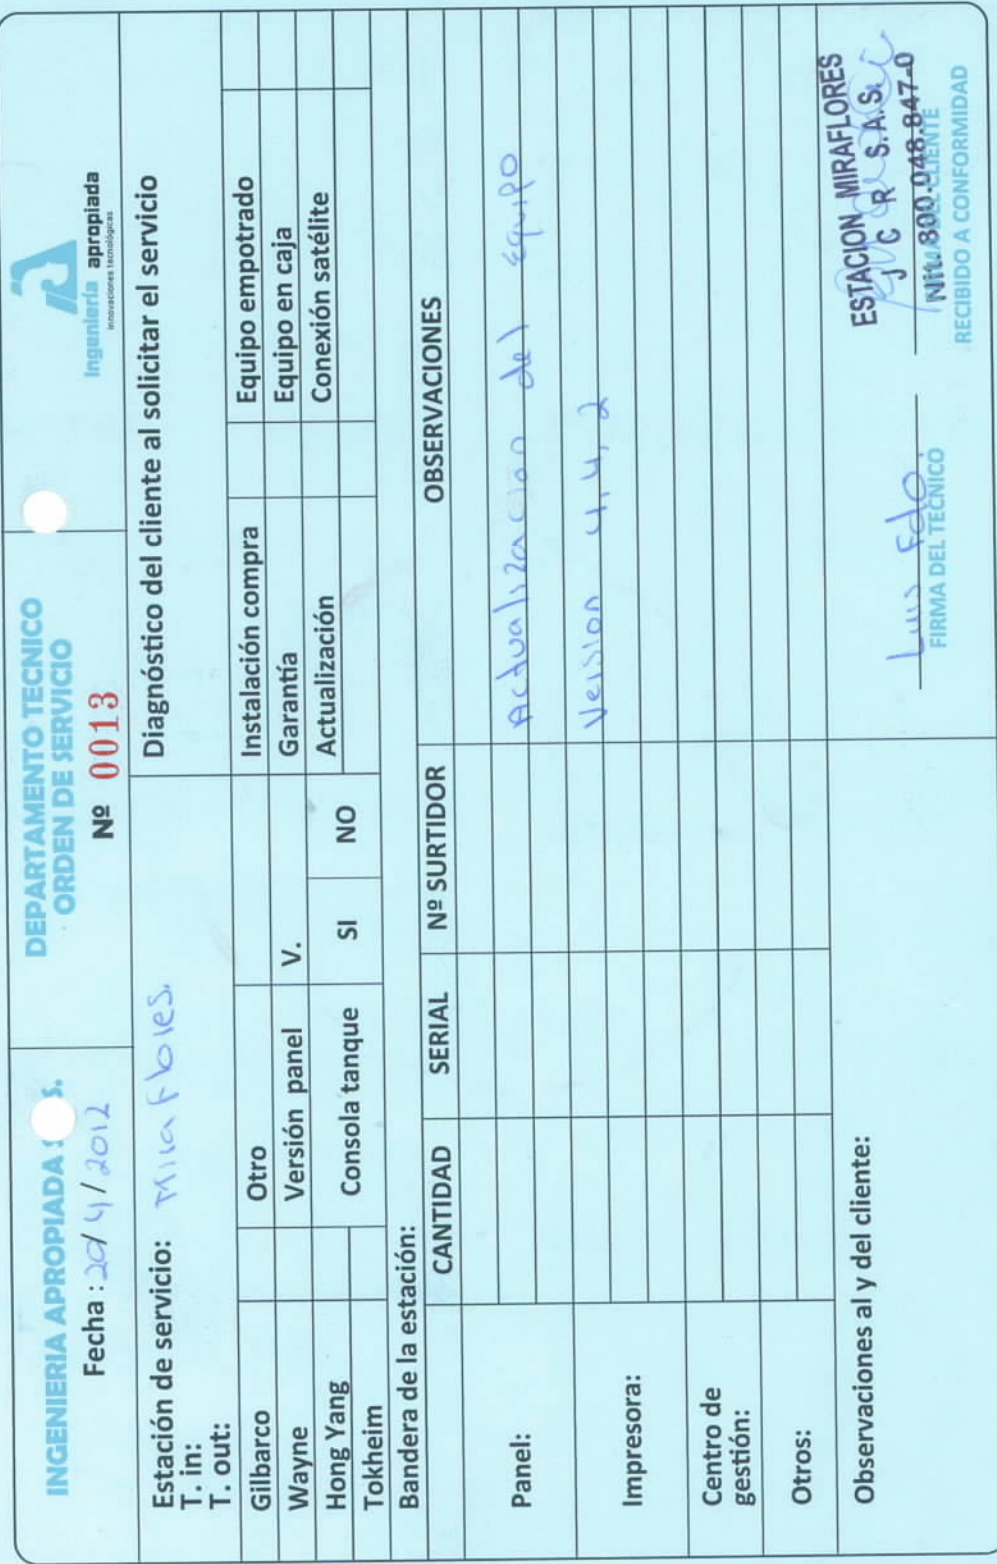 INGENIERIA APROPIADA S.
Fecha : 20/4/2012
DEPARTAMENTO TECNICO
ORDEN DE SERVICIO
Nº 0013
Ingeniería apropiada
innovaciones tecnológicas
Estación de servicio: Miraflores.
T. in:
T. out:
Diagnóstico del cliente al solicitar el servicio
Gilbarco Otro Instalación compra Equipo empotrado
Wayne Versión panel V. Garantía Equipo en caja
Hong Yang Consola tanque SI NO Actualización Conexión satélite
Tokheim
Bandera de la estación:
CANTIDAD SERIAL Nº SURTIDOR OBSERVACIONES
Panel:
Actualizacion del Equipo
Impresora:
Version 4,4,2
Centro de
gestión:
Otros:
Observaciones al y del cliente:
Luis Fdo.
FIRMA DEL TECNICO
ESTACION MIRAFLORES
J C R S.A.S.
Nit. 800.048.847-0
FIRMA DEL CLIENTE
RECIBIDO A CONFORMIDAD